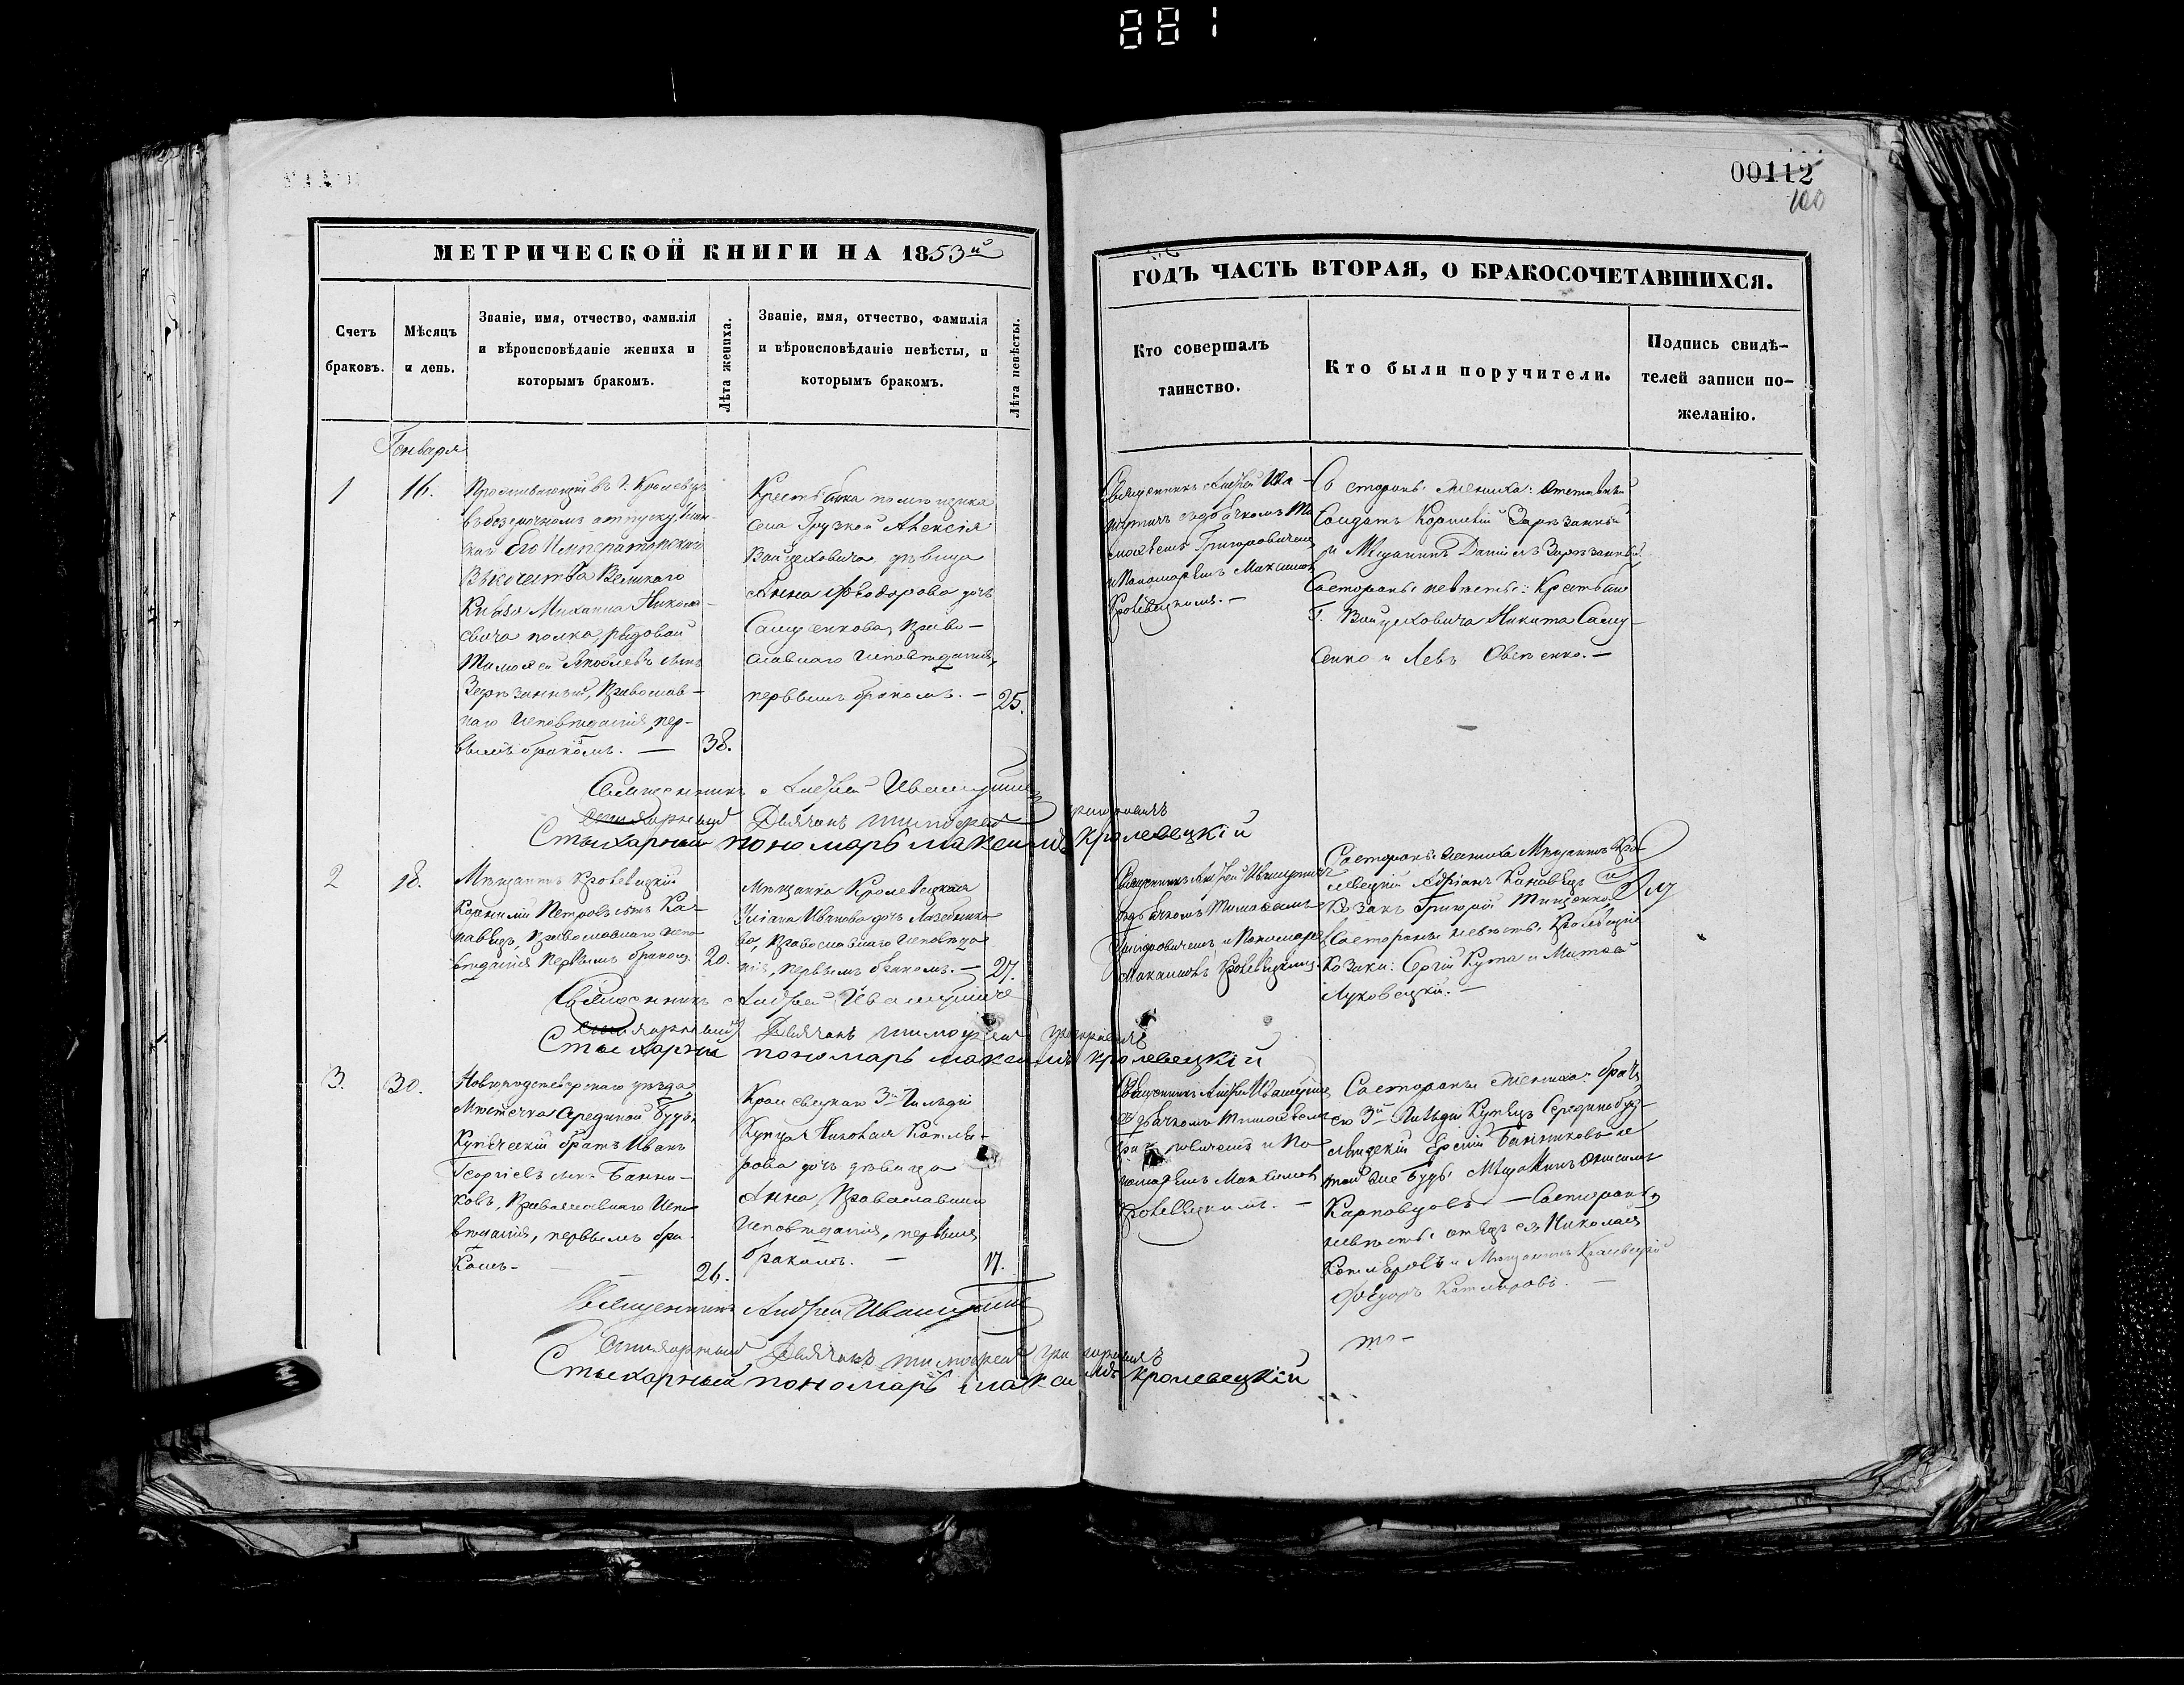 881
00112
100
МЕТРИЧЕСКОЙ КНИГИ НА 1853й
ГОДЪ ЧАСТЬ ВТОРАЯ, О БРАКОСОЧЕТАВШИХСЯ.
Счетъ
браковъ.
Мѣсяцъ
и день.
Званіе, имя, отчество, фамилія
и вѣроисповѣданіе жениха и
которымъ бракомъ.
Лѣта жениха.
Званіе, имя, отчество, фамилія
и вѣроисповѣданіе невѣсты, и
которымъ бракомъ.
Лѣта невѣсты.
Кто совершалъ
таинство.
Кто были поручители.
Подпись свидѣ-
телей записи по-
желанію.
Генваря
1
16.
Проживающій въ Г. Кролевцѣ
въ безсрочномъ отпуску, Улан-
скаго Его Императорскаго
Высочества Великаго
Князя Михаила Николае-
вича полка, рядовой
Тимофей Яковлевъ сынъ
Зарѣзанный, Православ-
наго Исповѣданія, пер-
вымъ бракомъ. —
38.
Крестьянка помѣщика
села Грузкой Алексія
Войцеховича дѣвица
Анна Фіодорова дочь
Саму енкова, Право-
славнаго Исповѣданія,
первымъ бракомъ. —
25.
Священникъ Андрей Ива-
съ дьячкомъ Ти-
мофеемъ Григоровичемъ
и Пономаремъ Максимом
Кролевецкимъ. —
Со стороны жениха: Отставный
Солдатъ Корнилій Зарѣзанный
и Мѣщанинъ Даніилъ Зарѣзанный.
Состороны невѣсты: Крестьяне
Г. Войцеховича Никита Саму-
сенко и Левъ Овсѣенко. —
Священникъ Андрей
Стихарный Дьячокъ Тимофей Григоровичъ
Стыхарный пономарь максимъ кролевецкій
2
18.
Мѣщанинъ Кролевецкій
Корнилій Петровъ сынъ Ка-
навецъ, Православнаго испо-
вѣданія первымъ браком.
20.
Мѣщанка Кролевецкая
Уліана Иванова дочь Лазебнико-
ва, Православнаго Исповѣда-
нія, первымъ бракомъ. —
27.
Священникъ Андрей
съ дьячкомъ Тимофеемъ
Григоровичемъ и Пономаремъ
Максимомъ Кролевецкимъ.
Состороны жениха Мѣщанинъ Кро-
левецкій Адріанъ Кановецъ и
Козакъ Григорій Тищенко,
Состороны невѣсты: Кролевецкіе
Козаки: Сергій Кута и Матвей
Луковецкій. —
Священникъ Андрей
Стихарный Дьячокъ Тимофей Григоровичъ
Стыхарны пономарь максимъ кролевецкій
3.
30.
Новгородсѣверскаго уѣзда,
Мѣстечка Середыной Буды,
Купеческій братъ Иванъ
Георгіевъ сынъ Банни-
ковъ, Православнаго Испо-
вѣданія, первымъ бра-
комъ —
26.
Кролевецкаго 3й Гильдіи
Купца Николая Котля-
рова дочь дѣвица
Анна, Православнаго
Исповѣданія, первымъ
бракомъ. —
17.
Священникъ Андрей
съ дьячкомъ Тимофеемъ
Григоровичемъ и По-
номаремъ Максимом
Кролевецкимъ. —
Состороны Жениха: братъ
его 3й Гильдіи Купецъ Серединобуд-
скій Ерем Банниковъ и
той же Буды Мѣщанинъ
Карповцовъ — Состороны
невѣсты: отецъ ея Николай
Котляровъ и Мѣщанинъ Кролевецкій
Федоръ Котляровъ. —
Священникъ Андрей
Стихарный Дьячокъ Тимофей Григоровичъ
Стыхарный пономарь максимъ кролевецкій